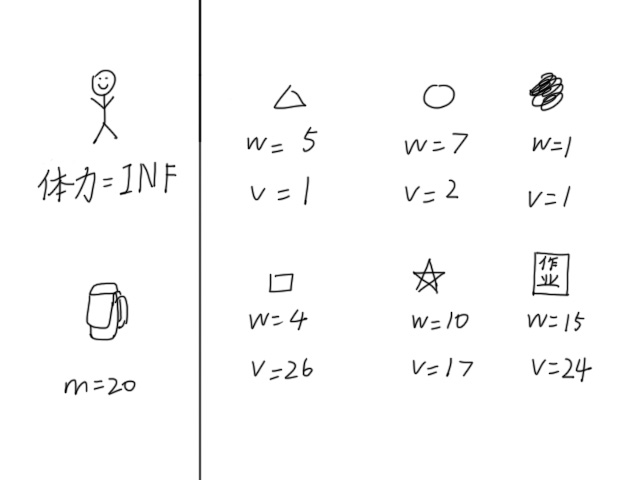 体力=INF
m=20
w=5
v=1
w=7
v=2
w=1
v=1
w=4
v=26
w=10
v=17
作
业
w=15
v=24